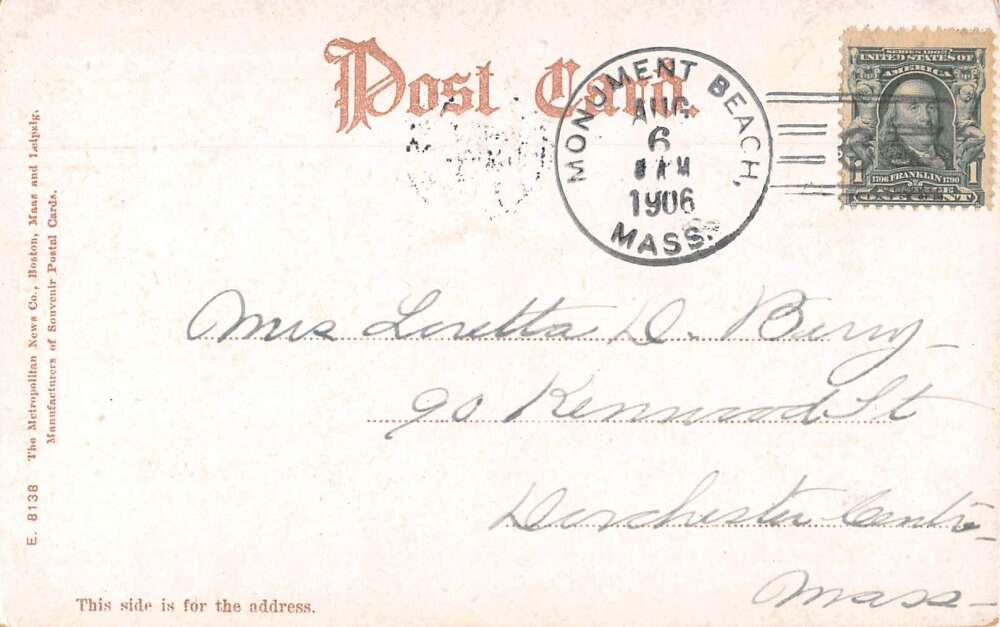 Post Card.
MONUMENT BEACH,
AUG
6
8 AM
1906
MASS.
SERIES 1902
UNITED STATES OF
AMERICA
1706 FRANKLIN 1790
1 POSTAGE 1
ONE CENT
Mrs Loretta D. Berry
90 Kenwood St
Dorchester Centre
Mass
E. 8138 The Metropolitan News Co., Boston, Mass and Leipzig.
Manufacturers of Souvenir Postal Cards.
This side is for the address.